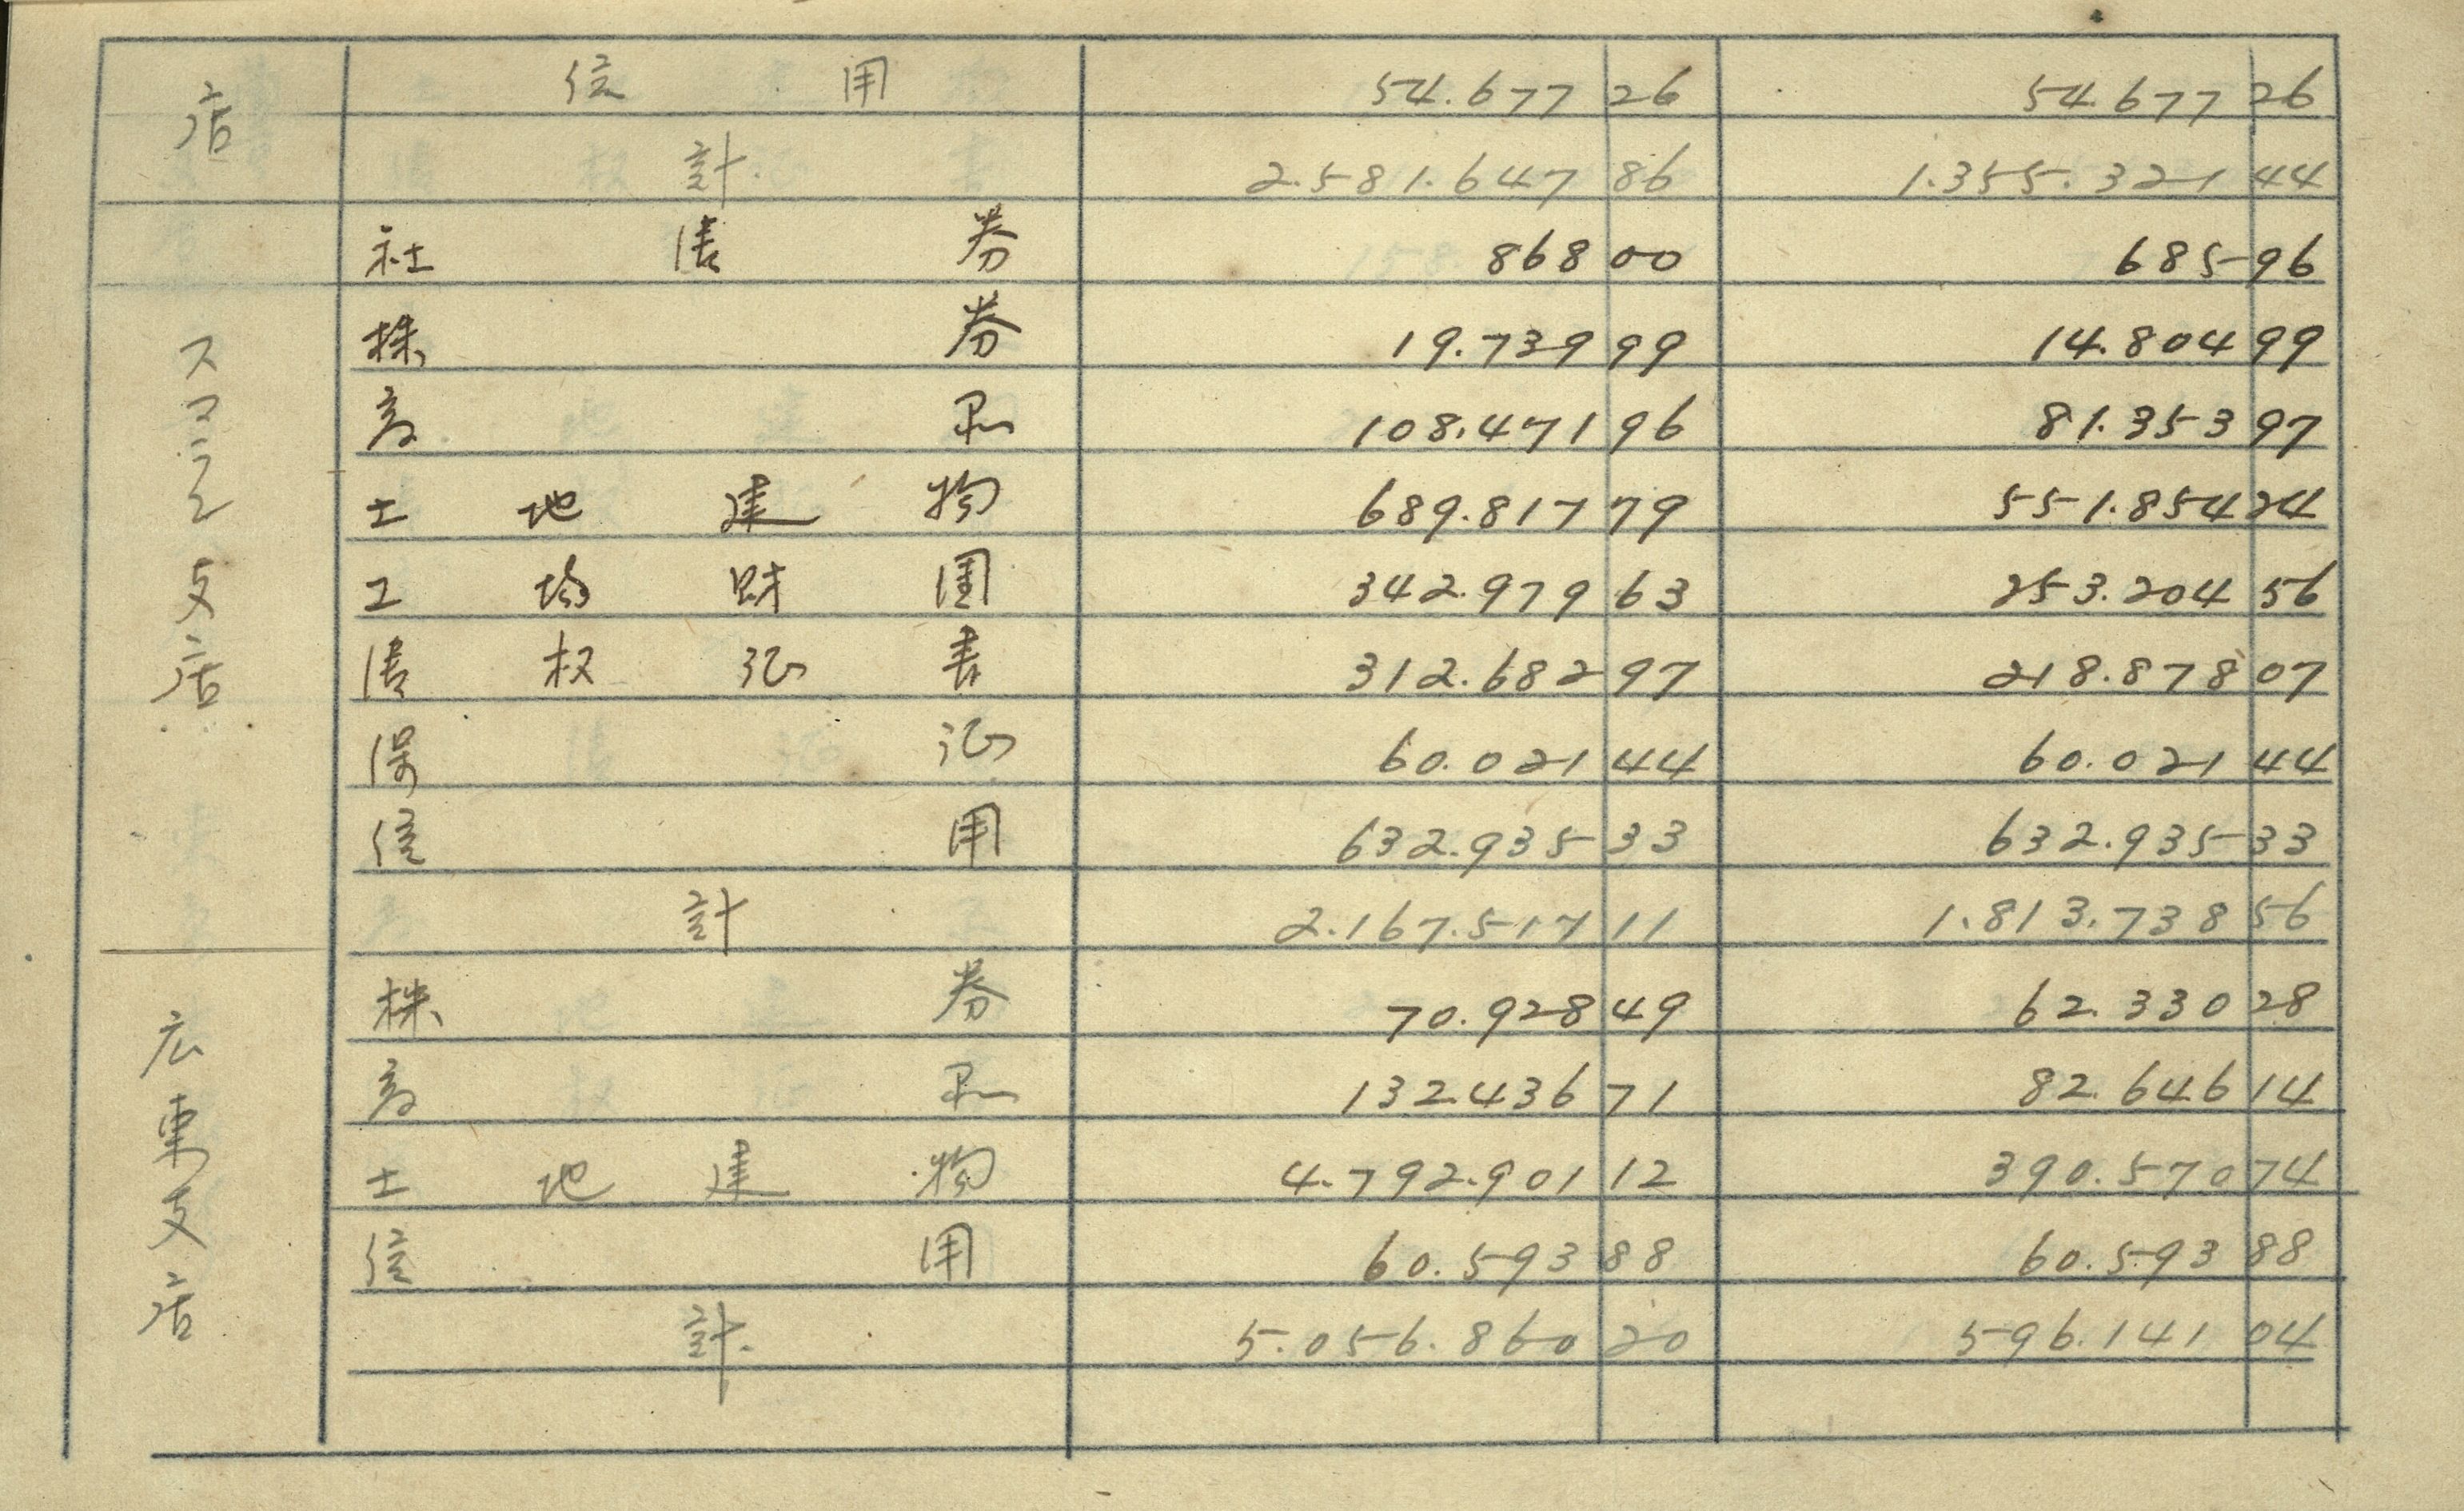 店
信用 54.677 26 54.677 26
計 2.581.647 86 1.355.321 44
スマラン支店
社債券 868 00 685 96
株券 19.739 99 14.804 99
商品 108.471 96 81.353 97
土地建物 689.817 79 551.854 24
工場財団 342.979 63 253.204 56
債権証書 312.682 97 218.878 07
保証 60.021 44 60.021 44
信用 632.935 33 632.935 33
計 2.167.517 11 1.813.738 56
広東支店
株券 70.928 49 62.330 28
商品 132.436 71 82.646 14
土地建物 4.792.901 12 390.570 74
信用 60.593 88 60.593 88
計 5.056.860 20 596.141 04